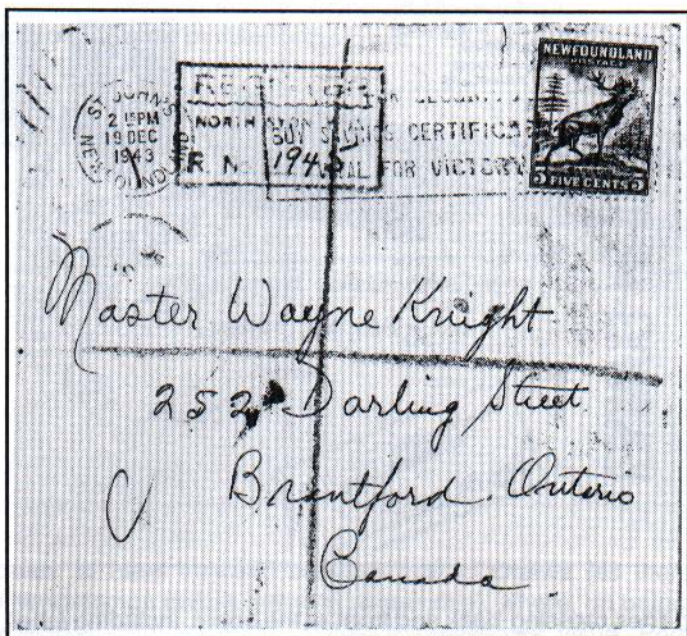 ST. JOHN'S
2 15PM
19 DEC
1943
NEWFOUNDLAND
NORTH SYDN
R. No. 1945
BUY SAVINGS CERTIFIC
FOR VICTORY
NEWFOUNDLAND
POSTAGE
5 FIVE CENTS 5
Master Wayne Knight
252 Darling Street
Brantford. Ontario
Canada.